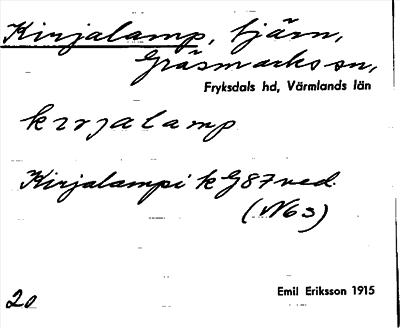 Kirjalamp, tjärn,
Gräsmarks sn,
Fryksdals hd, Värmlands län
kırjalamp
Kirjalampi k G87 ned.
(N63)
Emil Eriksson 1915
20